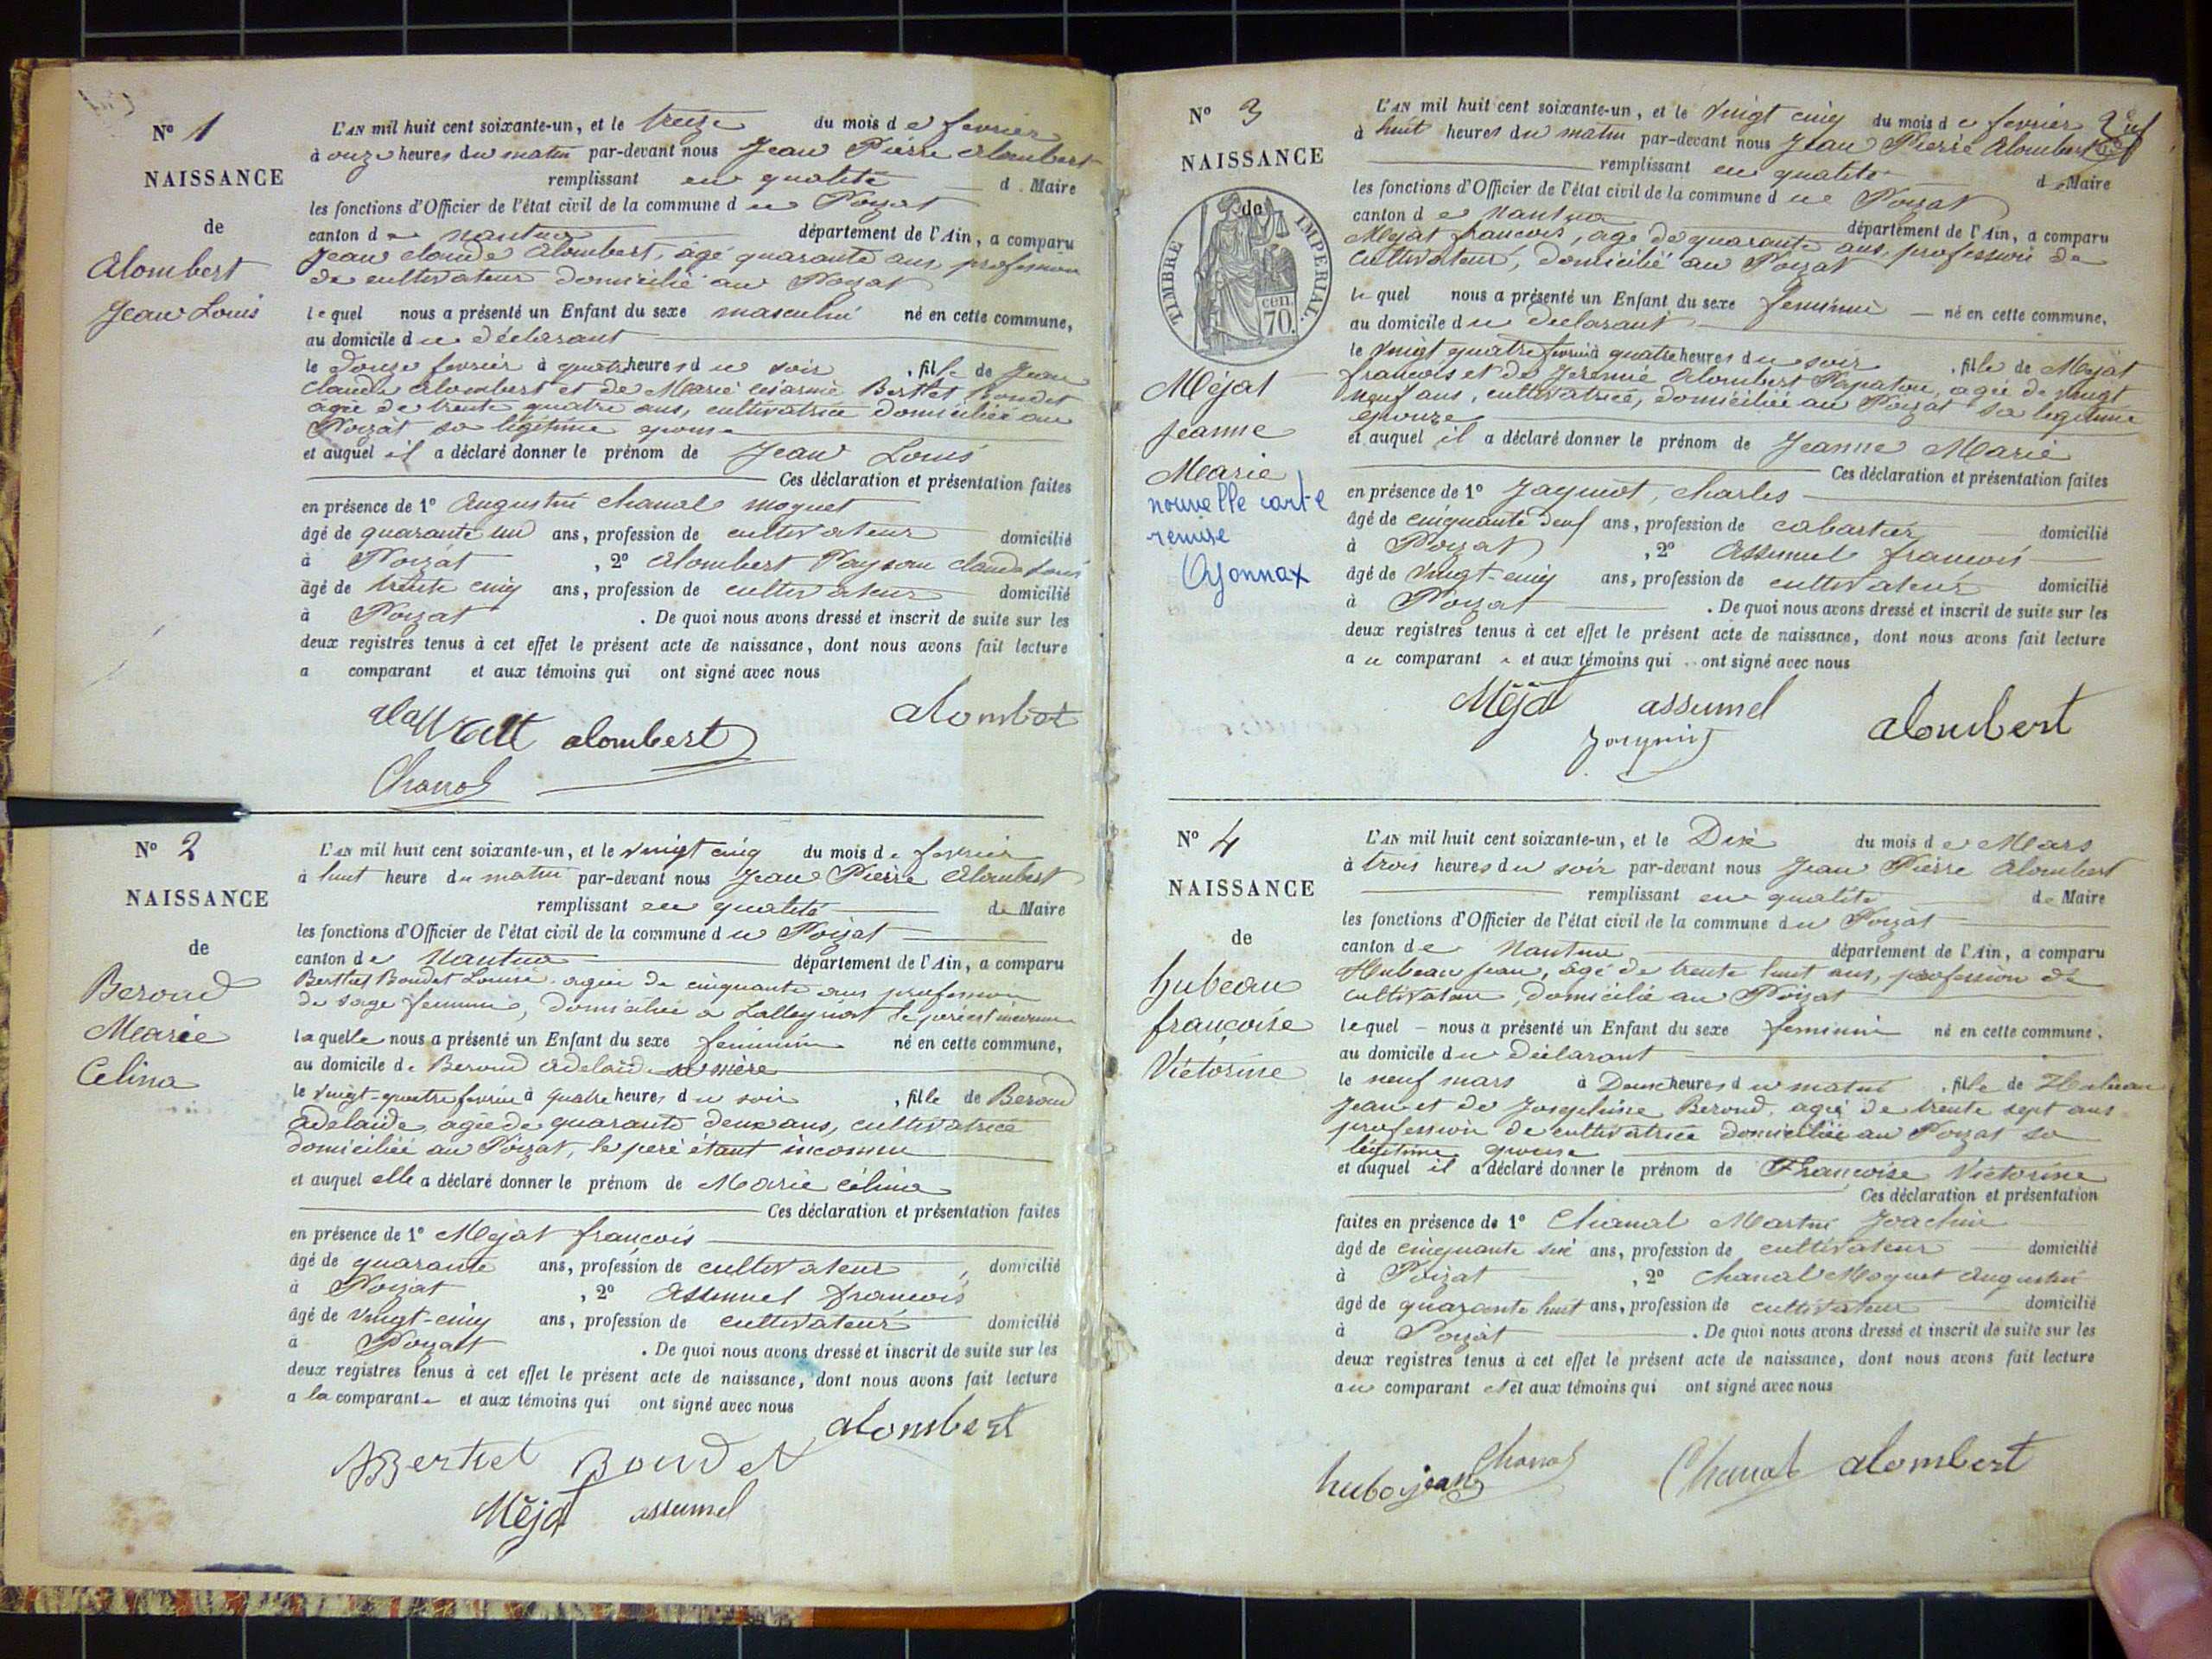 N° 1
NAISSANCE
de
Alombert
Jean Louis
L'AN mil huit cent soixante-un, et le treize du mois de fevrier
à onze heures du matin par-devant nous Jean Pierre Alombert
remplissant en qualité d Maire
les fonctions d'Officier de l'état civil de la commune du Poizat
canton de Nantua département de l'Ain, a comparu
Jean claude Alombert, âgé quarante ans profession
de cultivateur domicilié au Poizat
lequel nous a présenté un Enfant du sexe masculin né en cette commune,
au domicile du déclarant
le douze fevrier à quatre heures du soir, fils de Jean
Claude Alombert et de Marie Berthet Bondet
agée de trente quatre ans, cultivatrice domiciliée au
Poizat sa légitime epouse
et auquel il a déclaré donner le prénom de Jean Louis
Ces déclaration et présentation faites
en présence de 1° Augustin chanal moquet
âgé de quarante un ans, profession de cultivateur domicilié
à Poizat, 2° Alombert Claude Louis
âgé de trente cinq ans, profession de cultivateur domicilié
à Poizat. De quoi nous avons dressé et inscrit de suite sur les
deux registres tenus à cet effet le présent acte de naissance, dont nous avons fait lecture
a comparant et aux témoins qui ont signé avec nous
alombert
alombert
Chanal
N° 2
NAISSANCE
de
Beroud
Marie
Celina
L'AN mil huit cent soixante-un, et le vingt cinq du mois de fevrier
à huit heure du matin par-devant nous Jean Pierre Alombert
remplissant en qualité de Maire
les fonctions d'Officier de l'état civil de la commune du Poizat
canton de Nantua département de l'Ain, a comparu
Berthet Bondet Louise agée de cinquante ans profession
de sage femme, domiciliée a Lalleyriat le père est inconnu
laquelle nous a présenté un Enfant du sexe feminin né en cette commune,
au domicile de Beroud Adelaide sa mère
le vingt-quatre fevrier à quatre heures du soir, fille de Beroud
Adelaide agée de quarante deux ans, cultivatrice
domiciliée au Poizat, le père étant inconnu
et auquel elle a déclaré donner le prénom de Marie célina
Ces déclaration et présentation faites
en présence de 1° Mejat françois
âgé de quarante ans, profession de cultivateur domicilié
à Poizat, 2° Assumel francois
âgé de vingt-cinq ans, profession de cultivateur domicilié
à Poizat. De quoi nous avons dressé et inscrit de suite sur les
deux registres tenus à cet effet le présent acte de naissance, dont nous avons fait lecture
a la comparante et aux témoins qui ont signé avec nous
alombert
Berthet Bondet
Méjat assumel
N° 3
NAISSANCE
de
TIMBRE IMPERIAL
70 cen.
Méjat
Jeanne
Marie
nouvelle carte
remise
Oyonnax
L'AN mil huit cent soixante-un, et le vingt cinq du mois de fevrier
à huit heures du matin par-devant nous Jean Pierre Alombert
remplissant en qualité de Maire
les fonctions d'Officier de l'état civil de la commune du Poizat
canton de Nantua département de l'Ain, a comparu
Mejat francois, age de quarante ans, profession de
cultivateur, domicilié au Poizat
lequel nous a présenté un Enfant du sexe feminin né en cette commune,
au domicile du declarant
le vingt quatre fevrier à quatre heures du soir, fille de Mejat
francois et de Jeremie Alombert Papatou, agée de vingt
neuf ans, cultivatrice, domiciliée au Poizat sa legitime
epouze
et auquel il a déclaré donner le prénom de Jeanne Marie
Ces déclaration et présentation faites
en présence de 1° Jaquiot, Charles
âgé de cinquante neuf ans, profession de cabartier domicilié
à Poizat, 2° Assumel francois
âgé de vingt-cinq ans, profession de cultivateur domicilié
à Poizat. De quoi nous avons dressé et inscrit de suite sur les
deux registres tenus à cet effet le présent acte de naissance, dont nous avons fait lecture
au comparant et aux témoins qui ont signé avec nous
Méjat assumel
alombert
N° 4
NAISSANCE
de
hubeau
françoise
Victorine
L'AN mil huit cent soixante-un, et le Dix du mois de Mars
à trois heures du soir par-devant nous Jean Pierre Alombert
remplissant en qualité de Maire
les fonctions d'Officier de l'état civil de la commune du Poizat
canton de Nantua département de l'Ain, a comparu
Hubeau Jean, âgé de trente huit ans, profession de
cultivateur, domicilié au Poizat
lequel nous a présenté un Enfant du sexe feminin né en cette commune,
au domicile du déclarant
le neuf mars à Deux heures du matin, fille de Hubeau
Jean et de Josephine Beroud, agée de trente sept ans
profession de cultivatrice domiciliée au Poizat sa
légitime epouse
et auquel il a déclaré donner le prénom de Françoise Victorine
Ces déclaration et présentation
faites en présence de 1° Chanal Martin Joachin
âgé de cinquante six ans, profession de cultivateur domicilié
à Poizat, 2° Chanal Moquet Augustin
âgé de quarante huit ans, profession de cultivateur domicilié
à Poizat. De quoi nous avons dressé et inscrit de suite sur les
deux registres tenus à cet effet le présent acte de naissance, dont nous avons fait lecture
au comparant et aux témoins qui ont signé avec nous
jean Chanal Chanal alombert